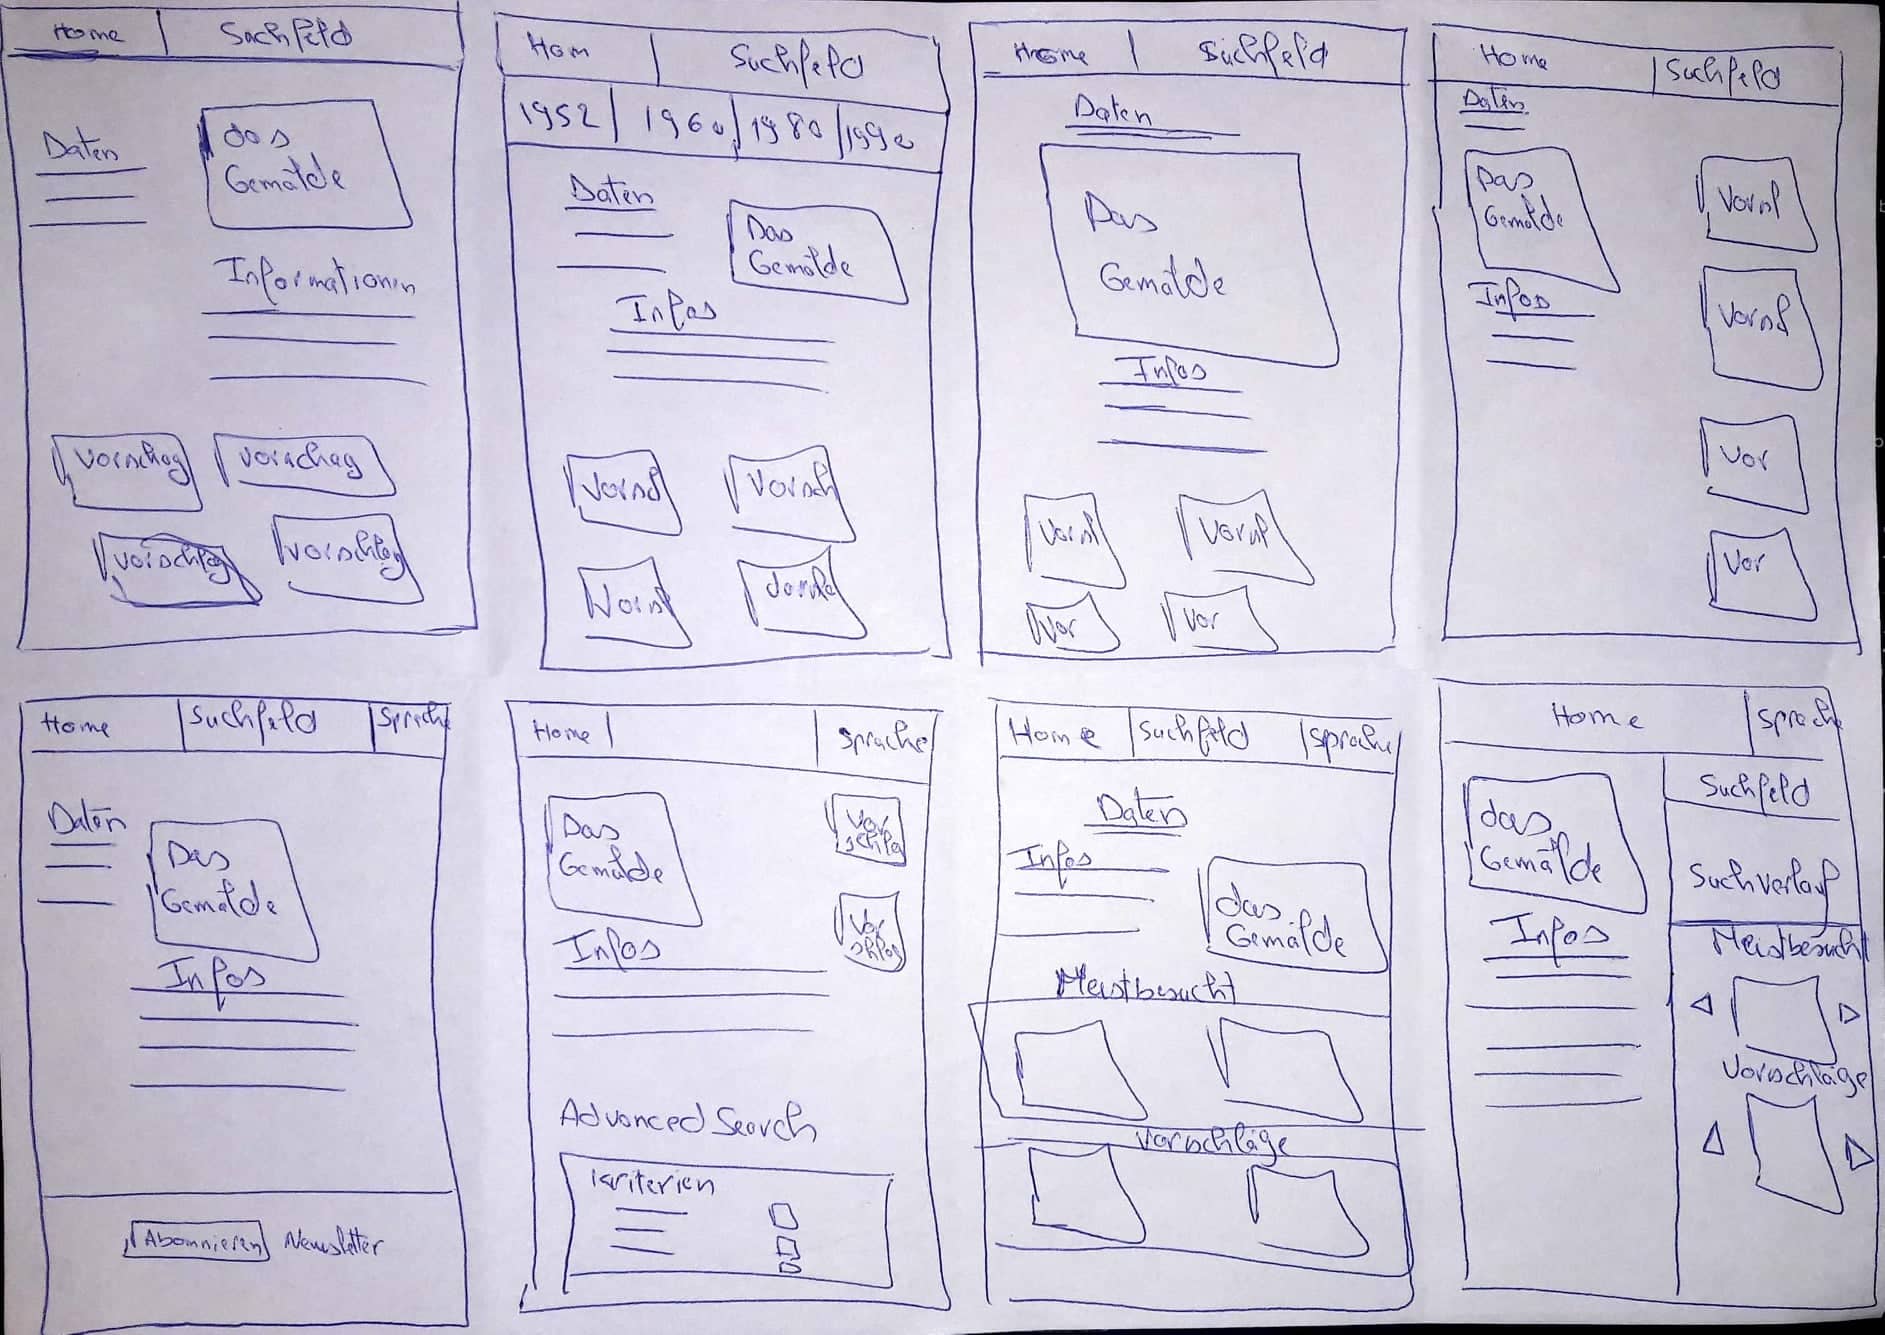 Home | Suchfeld
Daten
das
Gemälde
Informationen
Vorschag
Vorschag
Vorschlag
Vorschlag
Hom | Suchfeld
1952 | 1960 | 1980 | 1990
Daten
Das
Gemälde
Infos
Vorsch
Home | Suchfeld
Daten
Das
Gemälde
Infos
Vor
Vor
Home | Suchfeld
Daten
Das
Gemälde
Infos
Vor
Vor
Home | Suchfeld | Sprache
Daten
Das
Gemälde
Infos
Abonnieren Newsletter
Home | Sprache
Das
Gemälde
Vor
schla
Vor
schlag
Infos
Advanced Search
Kriterien
Home | Suchfeld | Sprache
Daten
Infos
das
Gemälde
Meistbesucht
Vorschläge
Home | Sprache
Suchfeld
das
Gemälde
Suchverlauf
Infos
Meistbesucht
Vorschläge